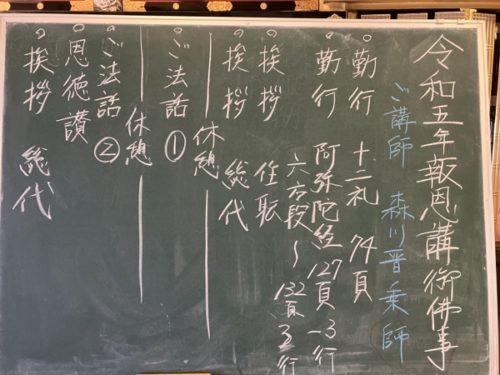 令和五年報恩講御佛事
ご講師 森川晋乗師
◦勤行 十二礼 74頁
◦勤行 阿弥陀経127頁-3行
六方段〜132頁五行
◦挨拶 住職
◦挨拶 総代
休憩
◦ご法話①
休憩
◦ご法話②
◦恩徳讃
◦挨拶 総代